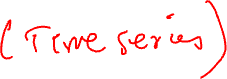 (Time series)